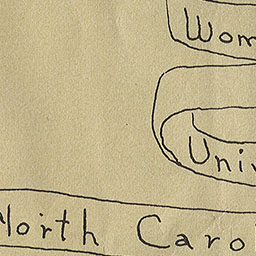 Wom
Univ
North Caro